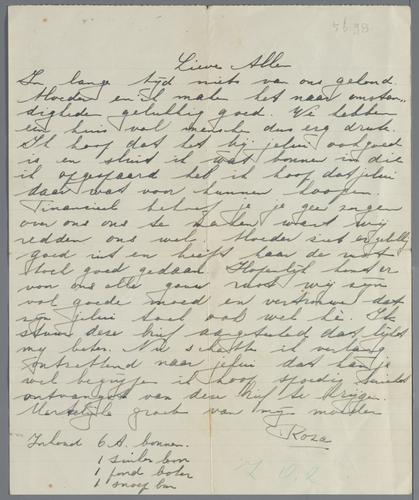 5698
Lieve Allen
In lange tijd niets van ons gehoord.
Moeder en ik maken het naar omstan-
digheden gelukkig goed. We hebben
een huis vol mensche dus erg druk.
Ik hoop dat het bij jelui ook goed
is en sluit ik wat bonnen in die
ik opgespaard heb ik hoop dat jelui
daar wat voor kunnen koopen.
Financieel behoef je je geen zorgen
over ons te maken want wij
redden ons wel. Moeder ziet er gelukkig
goed uit en heeft haar de rust
heel goed gedaan. Hopenlijk komt er
voor ons alle gauw rust wij zijn
vol goede moed en vertrouw dat
zijn jelui toch ook wel hè. Ik
stuur deze brief aangeteekend dat lijkt
my beter. Nu schatte ik verlang
ontzettend naar jelui dat kan je
wel begrijpen ik hoop spoedig
ontvangst van deze brief te krijgen.
Hartelijke groete van mij moeder
Roza
Inhoud 6 A. bonnen.
1 suiker bon
1 pond boter
1 snoep bon